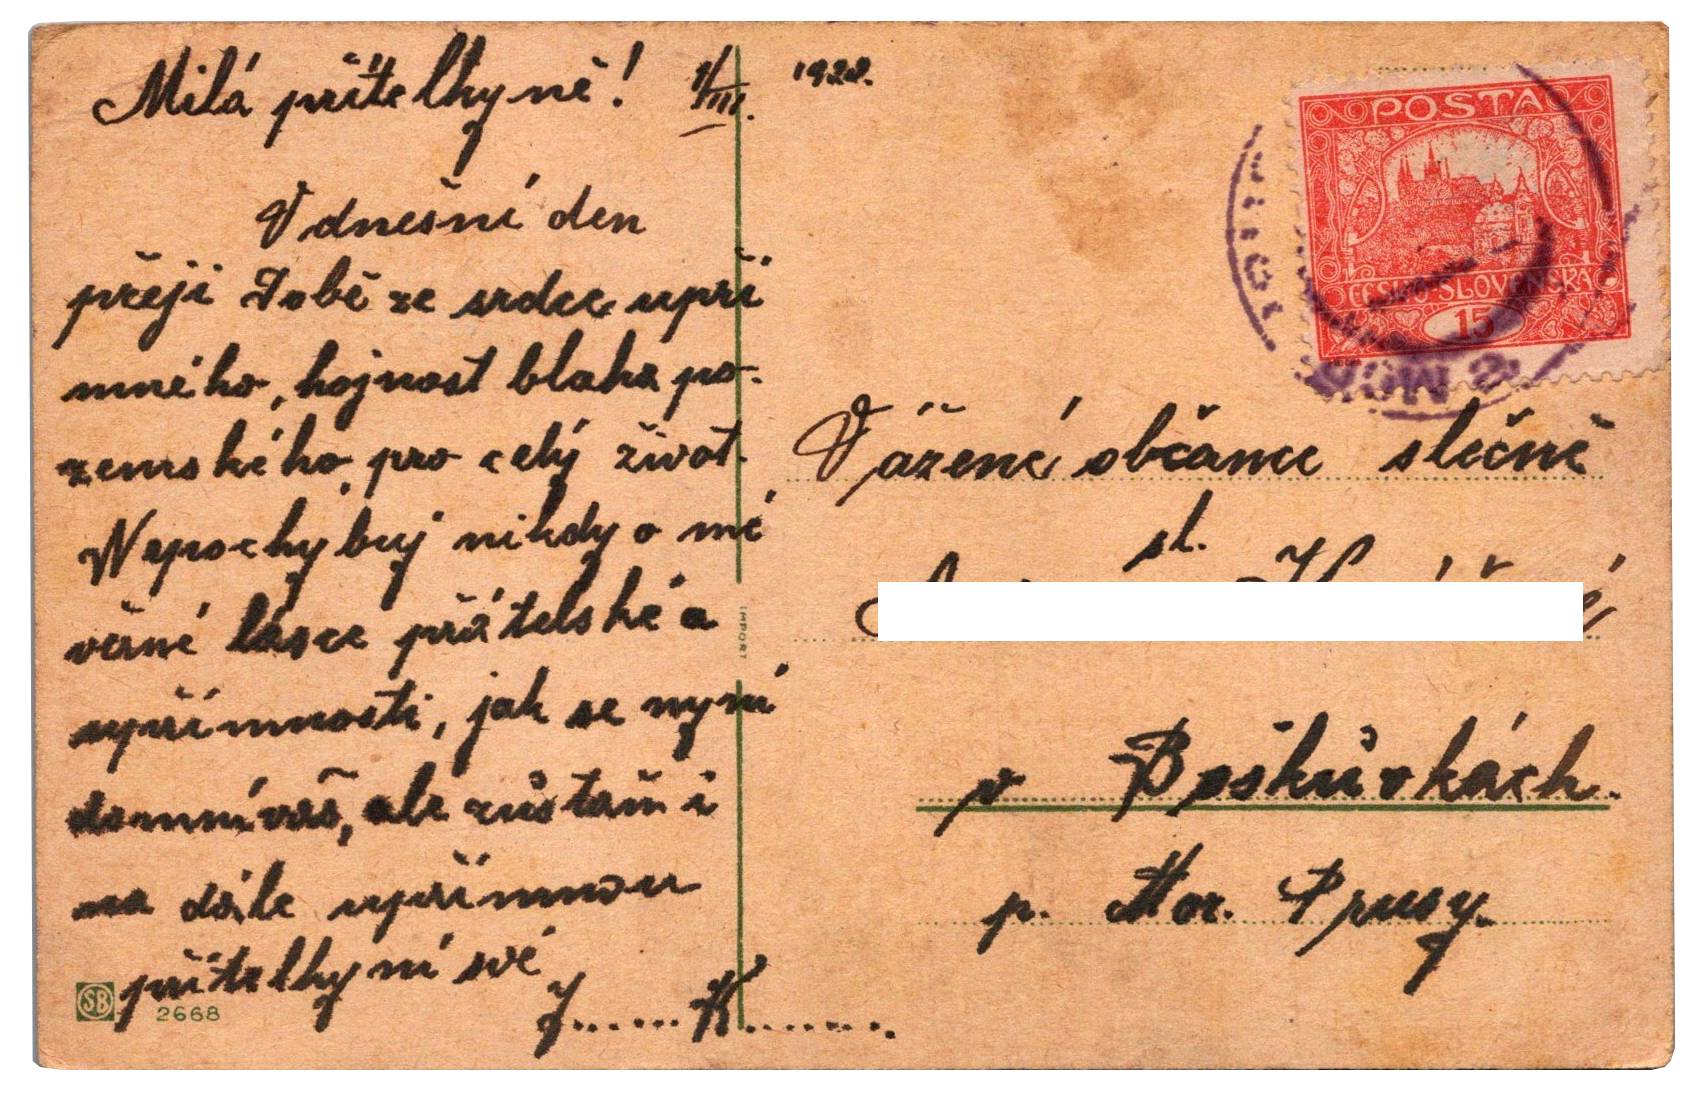 Milá přítelkyně! 1/III. 1920.
V dnešní den
přeji Tobě ze srdce upří
mného, hojnost blaha po-
zemského, pro celý život.
Nepochybuj nikdy o mé
věrné lásce přátelské a
upřímnosti, jak se nyní
domníváš, ale zůstaň i
na dále upřímnou
přítelkyní své
J......K.......
SB
2668
IMPORT
POŠTA
ČESKO-SLOVENSKÁ
15
Vážené občance slečně
sl.
v Boškůvkách.
p. Mor. Prusy.